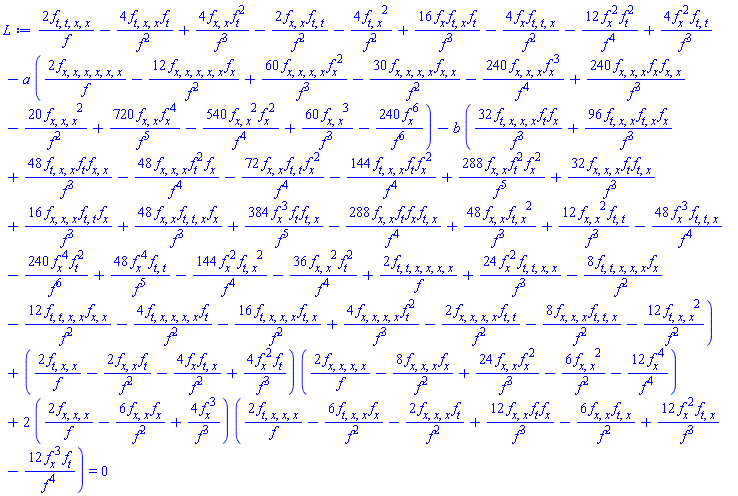 L := \frac{2 f_{t, t, x, x}}{f} - \frac{4 f_{t, x, x} f_t}{f^2} + \frac{4 f_{x, x} f_t^2}{f^3} - \frac{2 f_{x, x} f_{t, t}}{f^2} - \frac{4 f_{t, x}^2}{f^2} + \frac{16 f_x f_{t, x} f_t}{f^3} - \frac{4 f_x f_{t, t, x}}{f^2} - \frac{12 f_x^2 f_t^2}{f^4} + \frac{4 f_x^2 f_{t, t}}{f^3}
- a \left( \frac{2 f_{x, x, x, x, x, x}}{f} - \frac{12 f_{x, x, x, x, x} f_x}{f^2} + \frac{60 f_{x, x, x, x} f_x^2}{f^3} - \frac{30 f_{x, x, x, x} f_{x, x}}{f^2} - \frac{240 f_{x, x, x} f_x^3}{f^4} + \frac{240 f_{x, x, x} f_x f_{x, x}}{f^3}
- \frac{20 f_{x, x, x}^2}{f^2} + \frac{720 f_{x, x} f_x^4}{f^5} - \frac{540 f_{x, x}^2 f_x^2}{f^4} + \frac{60 f_{x, x}^3}{f^3} - \frac{240 f_x^6}{f^6} \right) - b \left( \frac{32 f_{t, x, x, x} f_t f_x}{f^3} + \frac{96 f_{t, x, x} f_{t, x} f_x}{f^3}
+ \frac{48 f_{t, x, x} f_t f_{x, x}}{f^3} - \frac{48 f_{x, x, x} f_t^2 f_x}{f^4} - \frac{72 f_{x, x} f_{t, t} f_x^2}{f^4} - \frac{144 f_{t, x, x} f_t f_x^2}{f^4} + \frac{288 f_{x, x} f_t^2 f_x^2}{f^5} + \frac{32 f_{x, x, x} f_t f_{t, x}}{f^3}
+ \frac{16 f_{x, x, x} f_{t, t} f_x}{f^3} + \frac{48 f_{x, x} f_{t, t, x} f_x}{f^3} + \frac{384 f_x^3 f_t f_{t, x}}{f^5} - \frac{288 f_{x, x} f_t f_x f_{t, x}}{f^4} + \frac{48 f_{x, x} f_{t, x}^2}{f^3} + \frac{12 f_{x, x}^2 f_{t, t}}{f^3} - \frac{48 f_x^3 f_{t, t, x}}{f^4}
- \frac{240 f_x^4 f_t^2}{f^6} + \frac{48 f_x^4 f_{t, t}}{f^5} - \frac{144 f_x^2 f_{t, x}^2}{f^4} - \frac{36 f_{x, x}^2 f_t^2}{f^4} + \frac{2 f_{t, t, x, x, x, x}}{f} + \frac{24 f_x^2 f_{t, t, x, x}}{f^3} - \frac{8 f_{t, t, x, x, x} f_x}{f^2}
- \frac{12 f_{t, t, x, x} f_{x, x}}{f^2} - \frac{4 f_{t, x, x, x, x} f_t}{f^2} - \frac{16 f_{t, x, x, x} f_{t, x}}{f^2} + \frac{4 f_{x, x, x, x} f_t^2}{f^3} - \frac{2 f_{x, x, x, x} f_{t, t}}{f^2} - \frac{8 f_{x, x, x} f_{t, t, x}}{f^2} - \frac{12 f_{t, x, x}^2}{f^2} \right)
+ \left( \frac{2 f_{t, x, x}}{f} - \frac{2 f_{x, x} f_t}{f^2} - \frac{4 f_x f_{t, x}}{f^2} + \frac{4 f_x^2 f_t}{f^3} \right) \left( \frac{2 f_{x, x, x, x}}{f} - \frac{8 f_{x, x, x} f_x}{f^2} + \frac{24 f_{x, x} f_x^2}{f^3} - \frac{6 f_{x, x}^2}{f^2} - \frac{12 f_x^4}{f^4} \right)
+ 2 \left( \frac{2 f_{x, x, x}}{f} - \frac{6 f_{x, x} f_x}{f^2} + \frac{4 f_x^3}{f^3} \right) \left( \frac{2 f_{t, x, x, x}}{f} - \frac{6 f_{t, x, x} f_x}{f^2} - \frac{2 f_{x, x, x} f_t}{f^2} + \frac{12 f_{x, x} f_t f_x}{f^3} - \frac{6 f_{x, x} f_{t, x}}{f^2} + \frac{12 f_x^2 f_{t, x}}{f^3}
- \frac{12 f_x^3 f_t}{f^4} \right) = 0